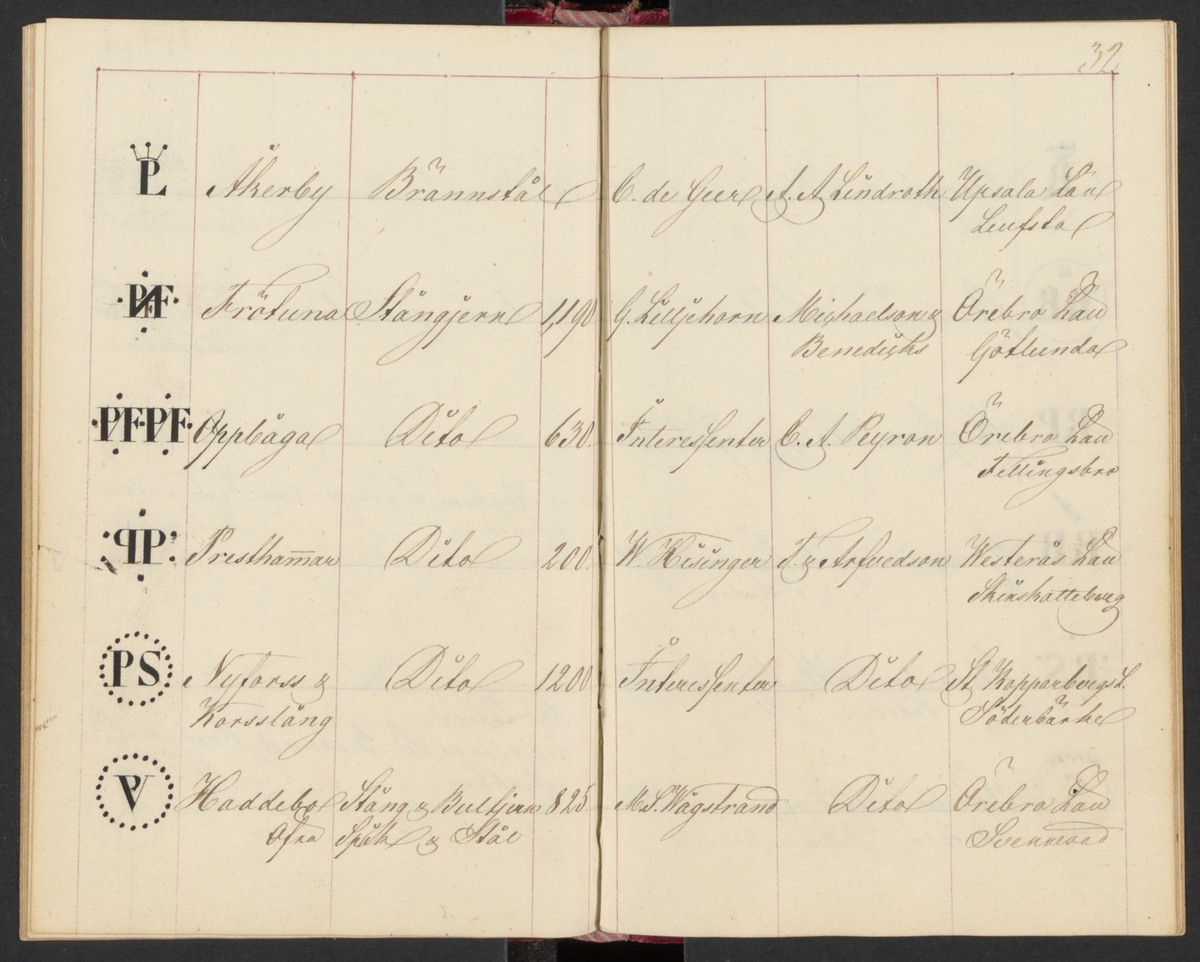 32
PL Åkerby Brännstål C. de Geer A. A. Lindroth Upsala Län
Leufsta
Frötuna Stångjern 1,190 G. Lilljehorn Michaelson & Örebro Län
Benedicks Götlunda
PF·PF Oppbåga Dito 630 Interessenter C. A. Peyron Örebro Län
Fellingsbro
PP Prestham̅ar Dito 200 W. Hisinger T. & Arfvedson Westerås Län
Skinskatteberg
PS Nyforss & Dito 1200 Interessenter Dito St. Kopparbergs L.
Korsslång Söderbärke
PV Haddebo Stång & Bultjern 825 M. S. Wågstrand Dito Örebro Län
Ofra Spik & Stål Svennevad